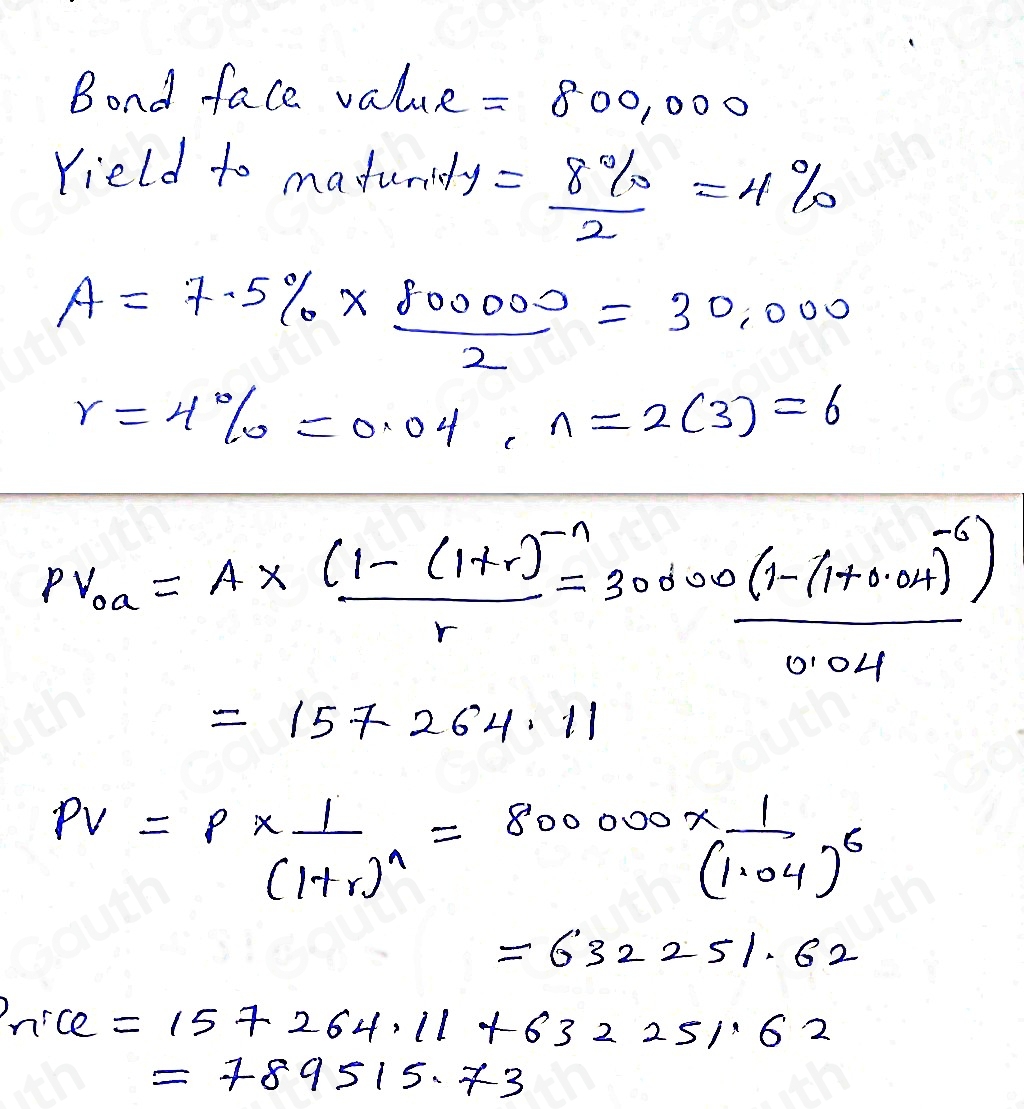 Bond face value = 800,000
Yield to maturity = 8%/2 = 4%
A = 7.5% × 800000/2 = 30,000
r = 4% = 0.04, n = 2(3) = 6
PVoa = A × (1 - (1+r)^-n / r = 30000 (1 - (1+0.04)^-6) / 0.04
= 157264.11
PV = P × 1/(1+r)^n = 800000 × 1/(1.04)^6
= 632251.62
Price = 157264.11 + 632251.62
= 789515.73